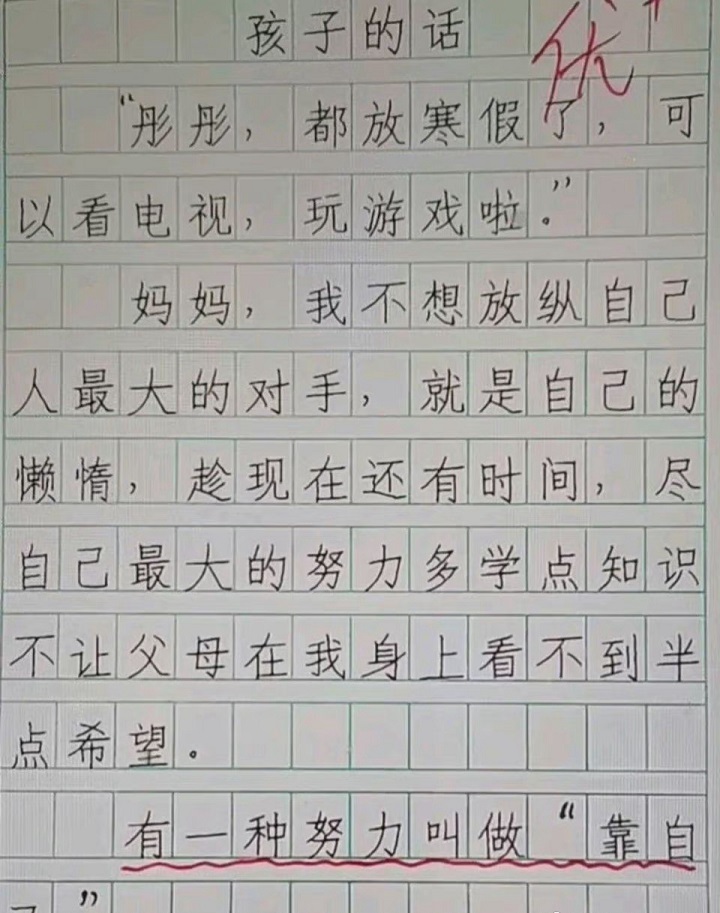 孩子的话
优
“彤彤，都放寒假了，可
以看电视，玩游戏啦。”
妈妈，我不想放纵自己
人最大的对手，就是自己的
懒惰，趁现在还有时间，尽
自己最大的努力多学点知识
不让父母在我身上看不到半
点希望。
有一种努力叫做“靠自
己”